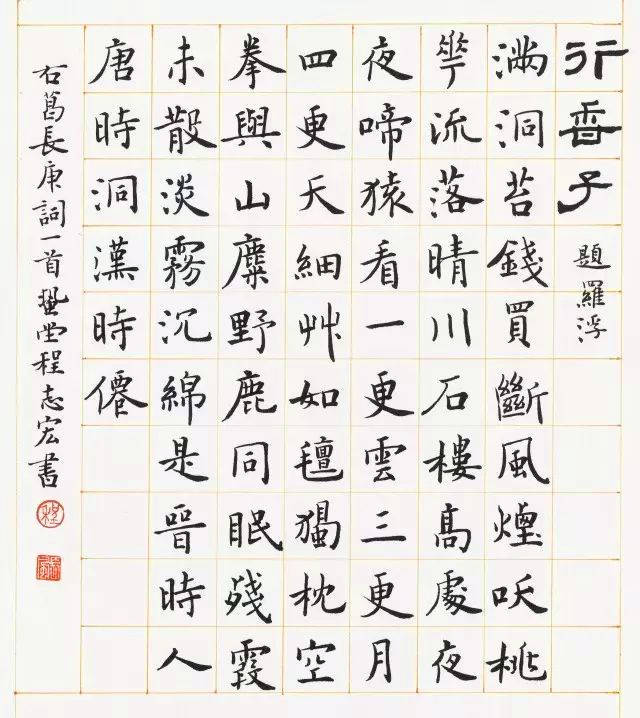 行香子 題羅浮
滿洞苔錢買斷風煙咲桃
華流落晴川石樓高處夜
夜啼猿看一更雲三更月
四更天細艸如氊獨枕空
拳與山麋野鹿同眠殘霞
未散淡霧沉綿是晉時人
唐時洞漢時僊
右葛長庚詞一首程志宏書
程